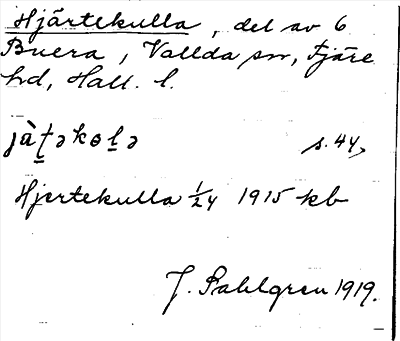 Hjärtekulla, del av 6
Buera, Vallda sn, Fjäre
hd, Hall. l.
jàt̠əkɵl̠ə s. 44,
Hjertekulla 1/24 1915 kb
J. Sahlgren 1919.